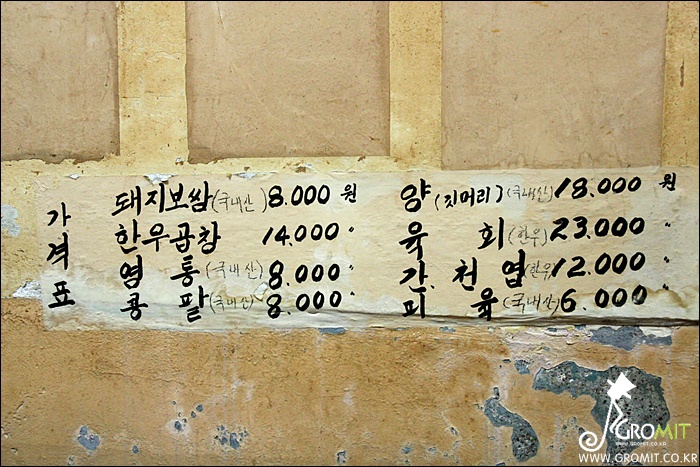 가격표
돼지보쌈(국내산) 8.000 원
한우곱창 14.000 〃
염통(국내산) 8.000 〃
콩팥(국내산) 8.000 〃
양(깃머리)(국내산) 18.000 원
육회(한우) 23.000 〃
간.천엽(한우) 12.000 〃
피육(국내산) 6.000 〃
GROMIT
WWW.GROMIT.CO.KR
WWW.GROMIT.CO.KR